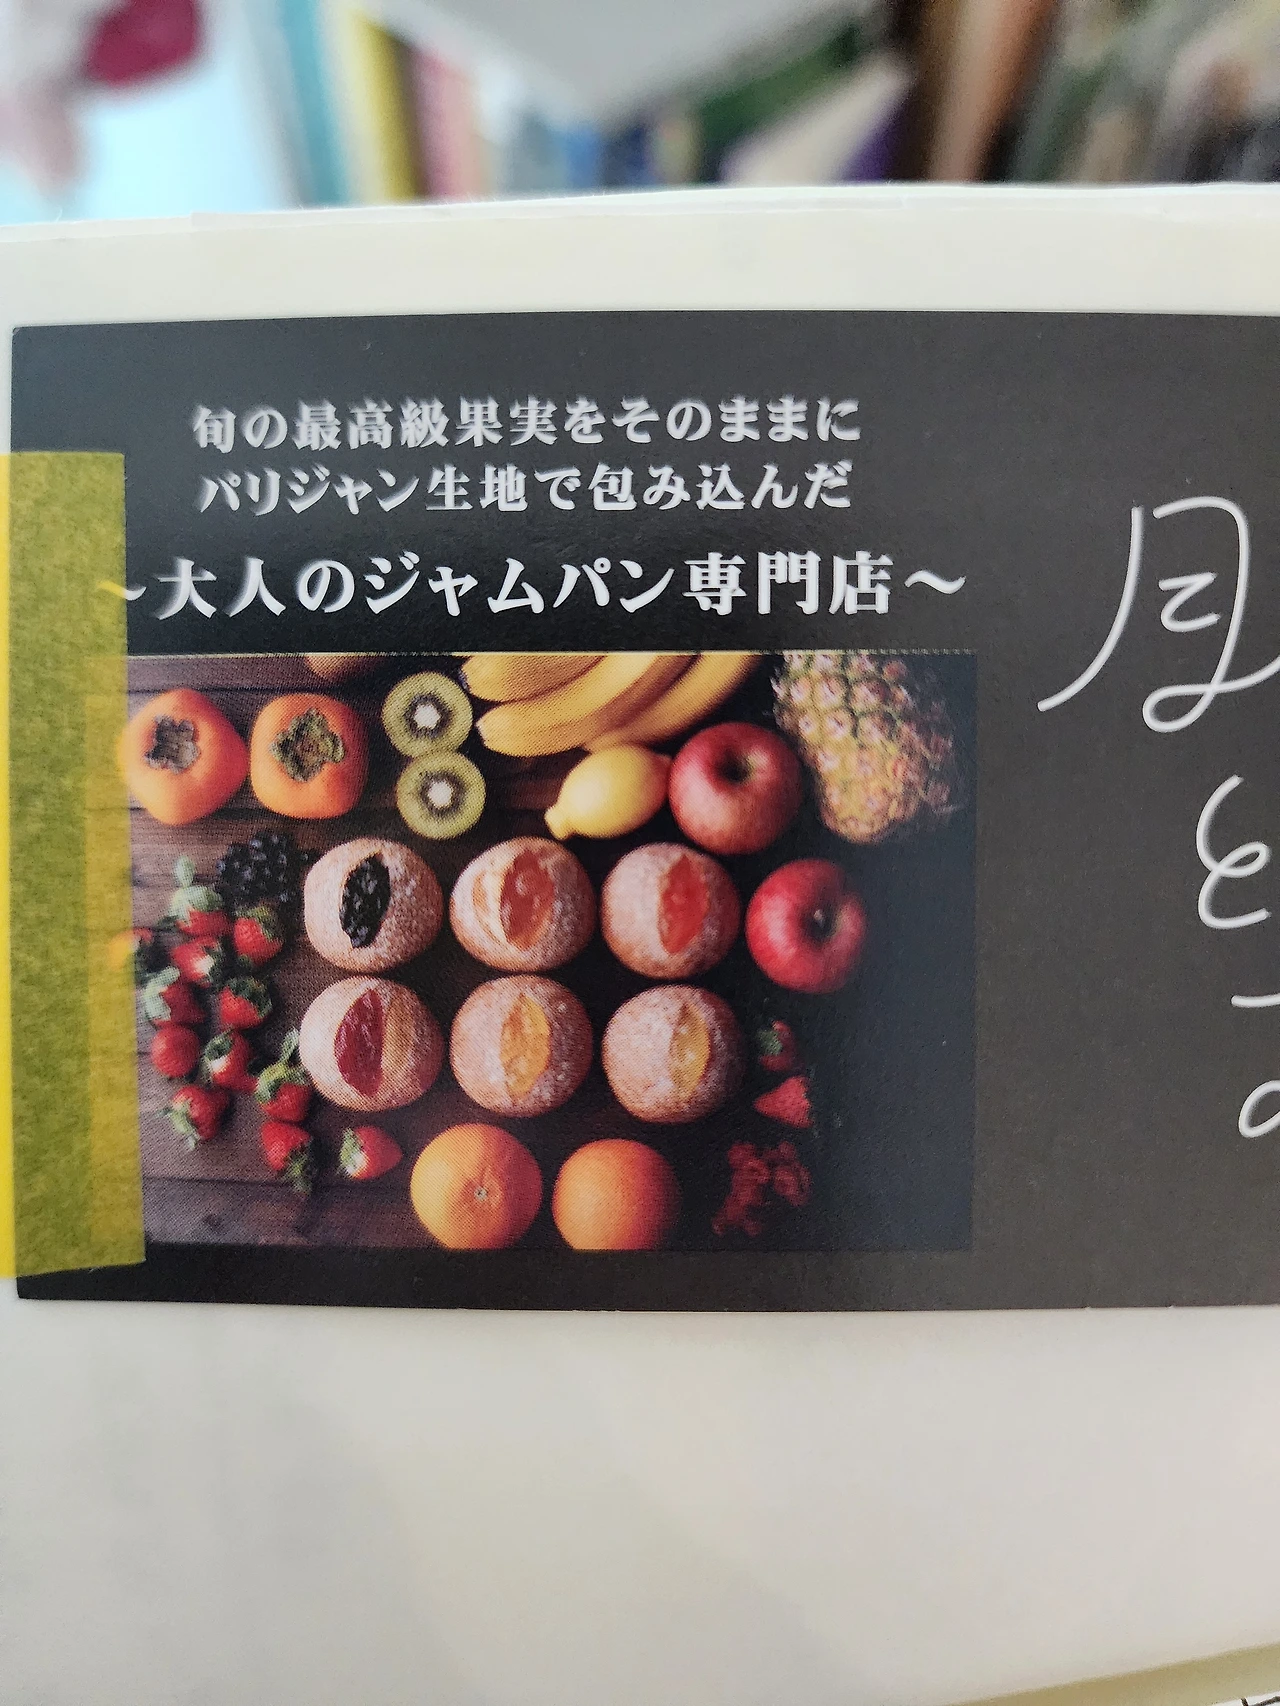 旬の最高級果実をそのままに
パリジャン生地で包み込んだ
～大人のジャムパン専門店～
月
と